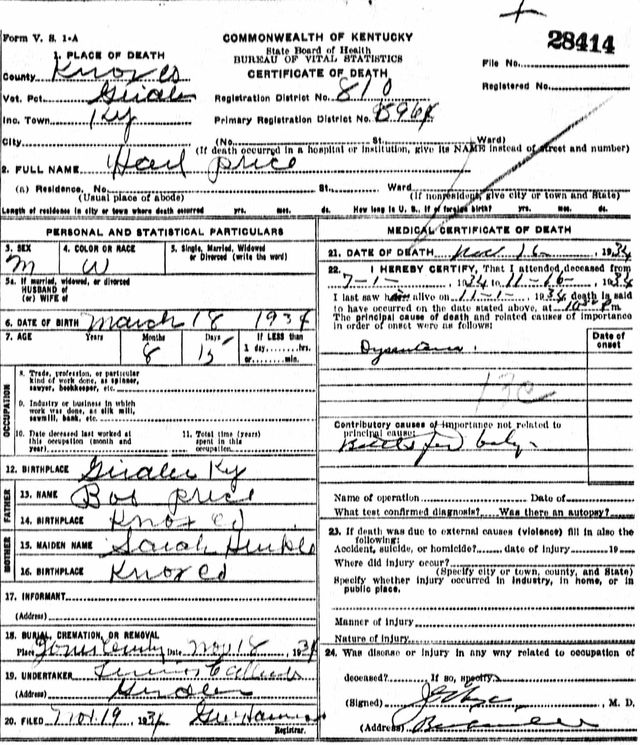 Form V. S. 1-A
COMMONWEALTH OF KENTUCKY
State Board of Health
BUREAU OF VITAL STATISTICS
CERTIFICATE OF DEATH
28414
File No.
Registered No.
1. PLACE OF DEATH
County Knox Co
Vot. Pct. Girdler
Inc. Town Ky
City
Registration District No. 810
Primary Registration District No.
(No. St. Ward)
(If death occurred in a hospital or institution, give its NAME instead of street and number)
2. FULL NAME Price
(a) Residence. No. St. Ward
(Usual place of abode) (If nonresident, give city or town and State)
Length of residence in city or town where death occurred yrs. mos. ds. How long in U. S., if of foreign birth? yrs. mos. ds.
PERSONAL AND STATISTICAL PARTICULARS
3. SEX M
4. COLOR OR RACE W
5. Single, Married, Widowed or Divorced (write the word)
5a. If married, widowed, or divorced
HUSBAND of
(or) WIFE of
6. DATE OF BIRTH March 18 1934
7. AGE Years Months 8 Days 15
If LESS than
1 day, hrs.
or min.
OCCUPATION
8. Trade, profession, or particular
kind of work done, as spinner,
sawyer, bookkeeper, etc.
9. Industry or business in which
work was done, as silk mill,
sawmill, bank, etc.
10. Date deceased last worked at
this occupation (month and
year)
11. Total time (years)
spent in this
occupation
12. BIRTHPLACE Girdler Ky
FATHER
13. NAME Bob Price
14. BIRTHPLACE Knox Co
MOTHER
15. MAIDEN NAME Sarah
16. BIRTHPLACE Knox Co
17. INFORMANT
(Address)
18. BURIAL, CREMATION, OR REMOVAL
Place Date Nov 18, 1934
19. UNDERTAKER
(Address) Girdler
20. FILED 19 1934
Registrar.
MEDICAL CERTIFICATE OF DEATH
21. DATE OF DEATH 16, 1934
22. I HEREBY CERTIFY, That I attended deceased from
7-1-, 1934 to 11-16-, 1934
I last saw h alive on 11-1-, 1934 death is said
to have occurred on the date stated above, at 10 m.
The principal cause of death and related causes of importance
in order of onset were as follows:
Date of
onset
Contributory causes of importance not related to
principal cause:
fed baby
Name of operation Date of
What test confirmed diagnosis? Was there an autopsy?
23. If death was due to external causes (violence) fill in also the
following:
Accident, suicide, or homicide? date of injury 19
Where did injury occur?
(Specify city or town, county, and State)
Specify whether injury occurred in industry, in home, or in
public place.
Manner of injury
Nature of injury
24. Was disease or injury in any way related to occupation of
deceased? If so, specify
(Signed) M. D.
(Address)